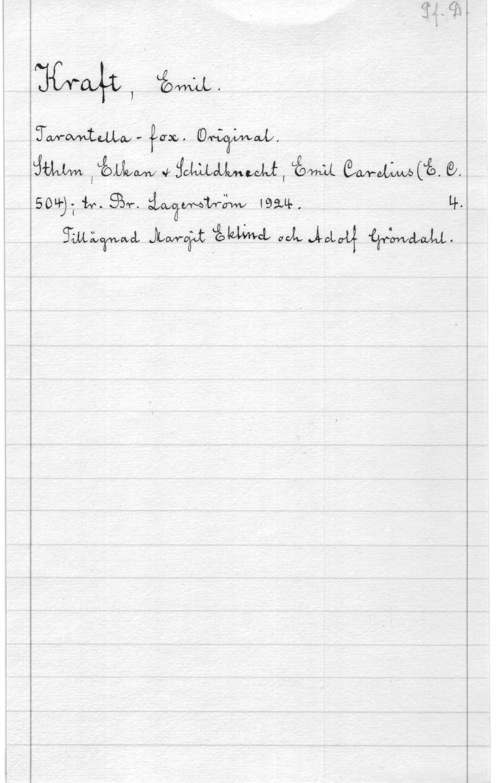 Pf. D
Kraft, Emil.
Tarantella - fox. Original.
Sthlm, Elkan & Schildknecht, Emil Carelius (E. C.
504); tr. Br. Lagerström 1924. 4.
Tillägnad Margit Eklind och Adolf Gröndahl.